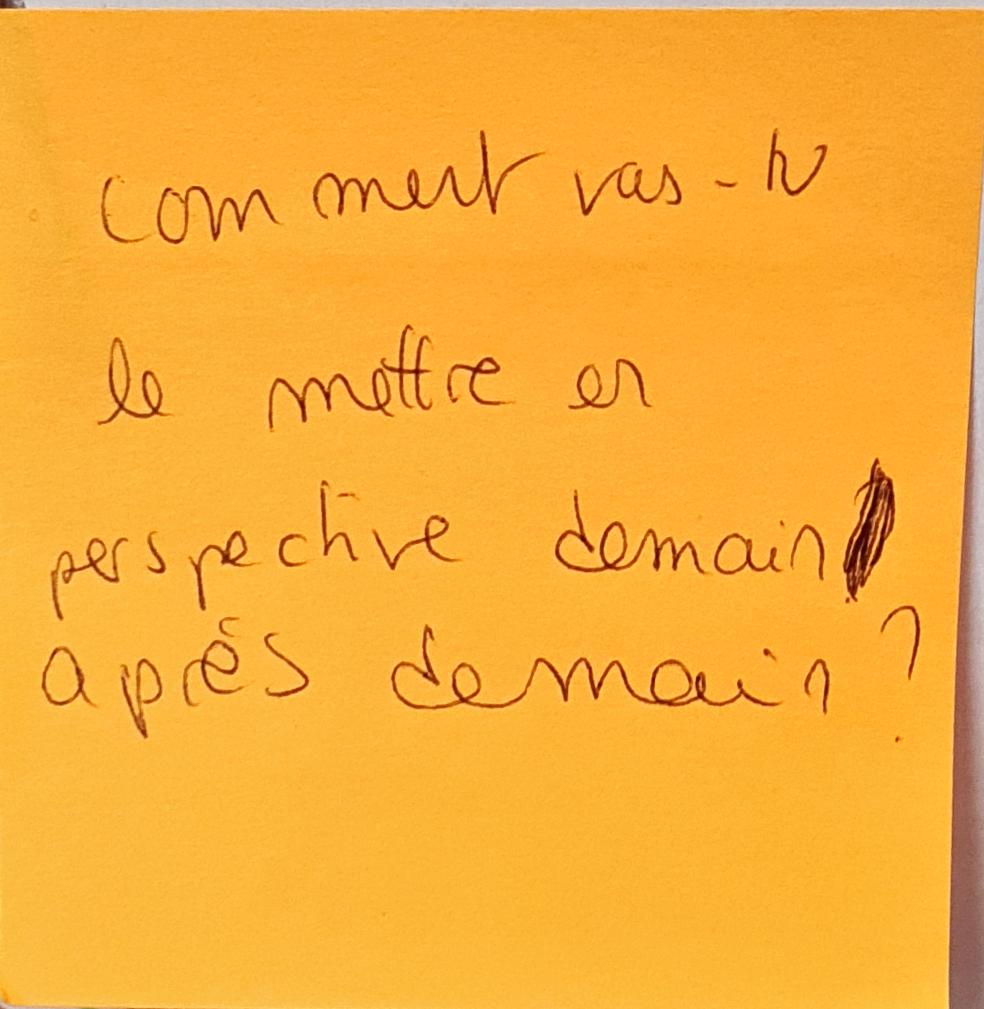 Comment vas-tu
le mettre en
perspective demain
après demain ?